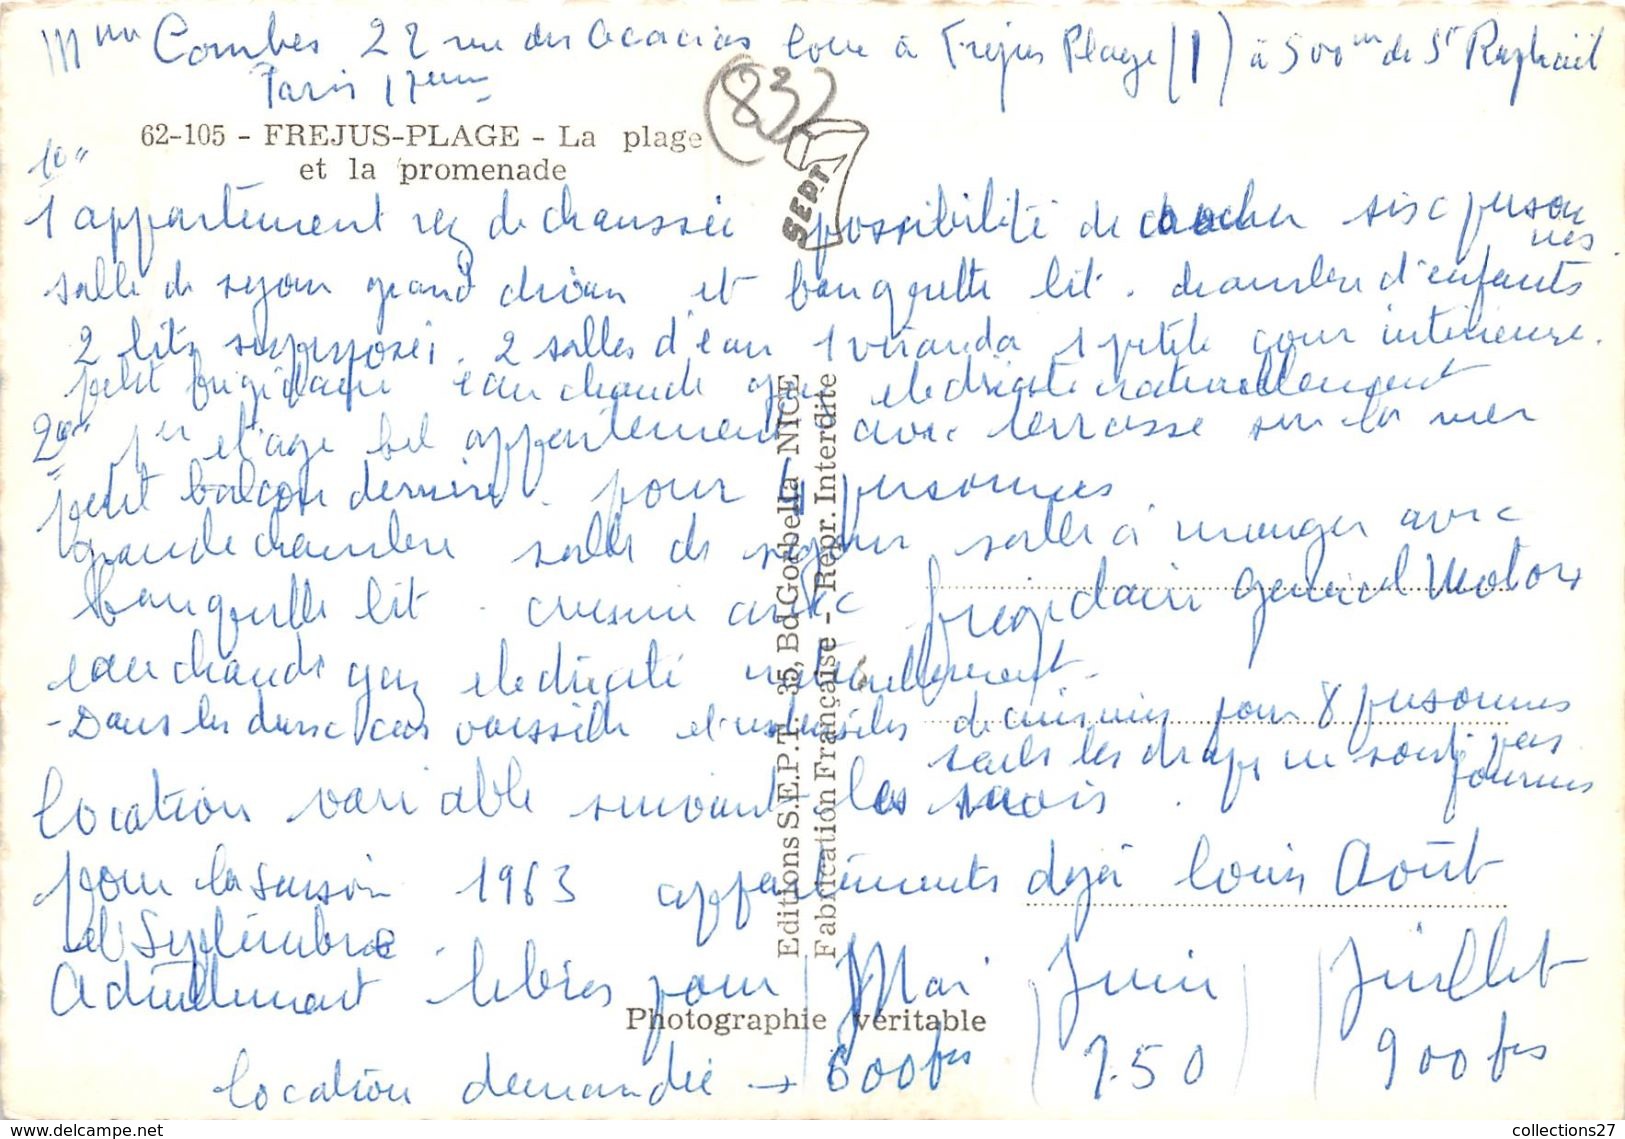 Mme Combes 22 rue des Acacias loue à Frejus Plage (1) à 500m de St Raphaël
Paris 17eme
(83)
62-105 - FREJUS-PLAGE - La plage
et la promenade
SEPT
1o
1 appartement rez de chaussée possibilité de coucher six personnes
salle de sejour grand divan et banquette lit. chambre d'enfants
2 lits superposés. 2 salles d'eau 1 véranda 1 petite cour intérieure.
petit frigidaire eau chaude gaz electricité naturellement
2o 1er etage bel appartement avec terrasse sur la mer
petit balcon derrière. pour 4 personnes
grande chambre salle de sejour salle à manger avec
banquette lit. cuisine avec frigidaire General Motors
eau chaude gaz electricité naturellement
- Dans les deux cas vaisselle et ustensiles de cuisine pour 8 personnes
seuls les draps ne sont pas fournis
location variable suivant les mois.
pour la saison 1963 appartements dejà loués Août
et Septembre.
Actuellement libres pour Mai Juin Juillet
location demandée → 600frs 750 900frs
Editions S.E.P.T. 35, Bd Gorbella - NICE
Fabrication Française - Repr. Interdite
Photographie véritable
collections27